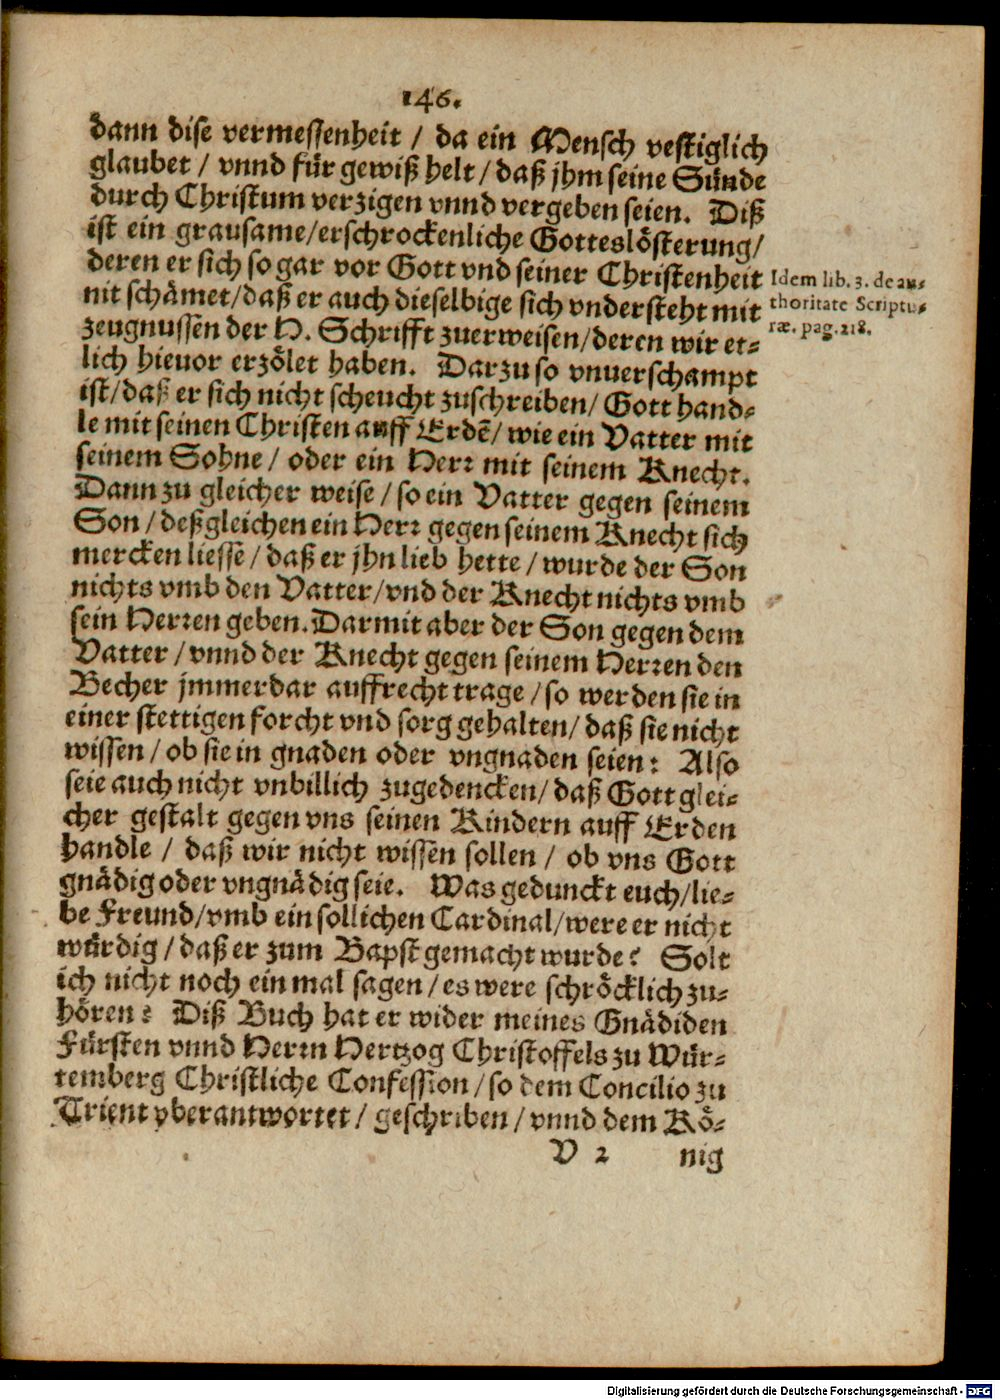 146.
dann dise vermessenheit / da ein Mensch vestiglich
glaubet / vnnd für gewiß helt / daß jhm seine Sünde
durch Christum verzigen vnnd vergeben seien. Diß
ist ein grausame/erschrockenliche Gotteslösterung/
deren er sich so gar vor Gott vnd seiner Christenheit
nit schämet/daß er auch dieselbige sich vndersteht mit
zeugnussen der H. Schrifft zuerweisen/deren wir et-
lich hieuor erzölet haben. Darzu so vnuerschampt
ist/daß er sich nicht scheucht zuschreiben/ Gott hand-
le mit seinen Christen auff Erdẽ/ wie ein Vatter mit
seinem Sohne / oder ein Herr mit seinem Knecht.
Dann zu gleicher weise / so ein Vatter gegen seinem
Son / deßgleichen ein Herr gegen seinem Knecht sich
mercken liesse / daß er jhn lieb hette / wurde der Son
nichts vmb den Vatter/vnd der Knecht nichts vmb
sein Herren geben. Darmit aber der Son gegen dem
Vatter / vnnd der Knecht gegen seinem Herren den
Becher jmmerdar auffrecht trage / so werden sie in
einer stettigen forcht vnd sorg gehalten/ daß sie nicht
wissen / ob sie in gnaden oder vngnaden seien: Also
seie auch nicht vnbillich zugedencken/ daß Gott glei-
cher gestalt gegen vns seinen Kindern auff Erden
handle / daß wir nicht wissen sollen / ob vns Gott
gnädig oder vngnädig seie. Was gedunckt euch/lie-
be Freund/vmb ein sollichen Cardinal/were er nicht
würdig / daß er zum Bapst gemacht wurde? Solt
ich nicht noch ein mal sagen / es were schröcklich zu-
hören? Diß Buch hat er wider meines Gnädiden
Fürsten vnnd Herrn Hertzog Christoffels zu Wür-
temberg Christliche Confession / so dem Concilio zu
Trient vberantwortet / geschriben / vnnd dem Kö-
V 2 nig
Idem lib. 3. de au-
thoritate Scriptu-
ræ. pag. 218.
Digitalisierung gefördert durch die Deutsche Forschungsgemeinschaft - DFG